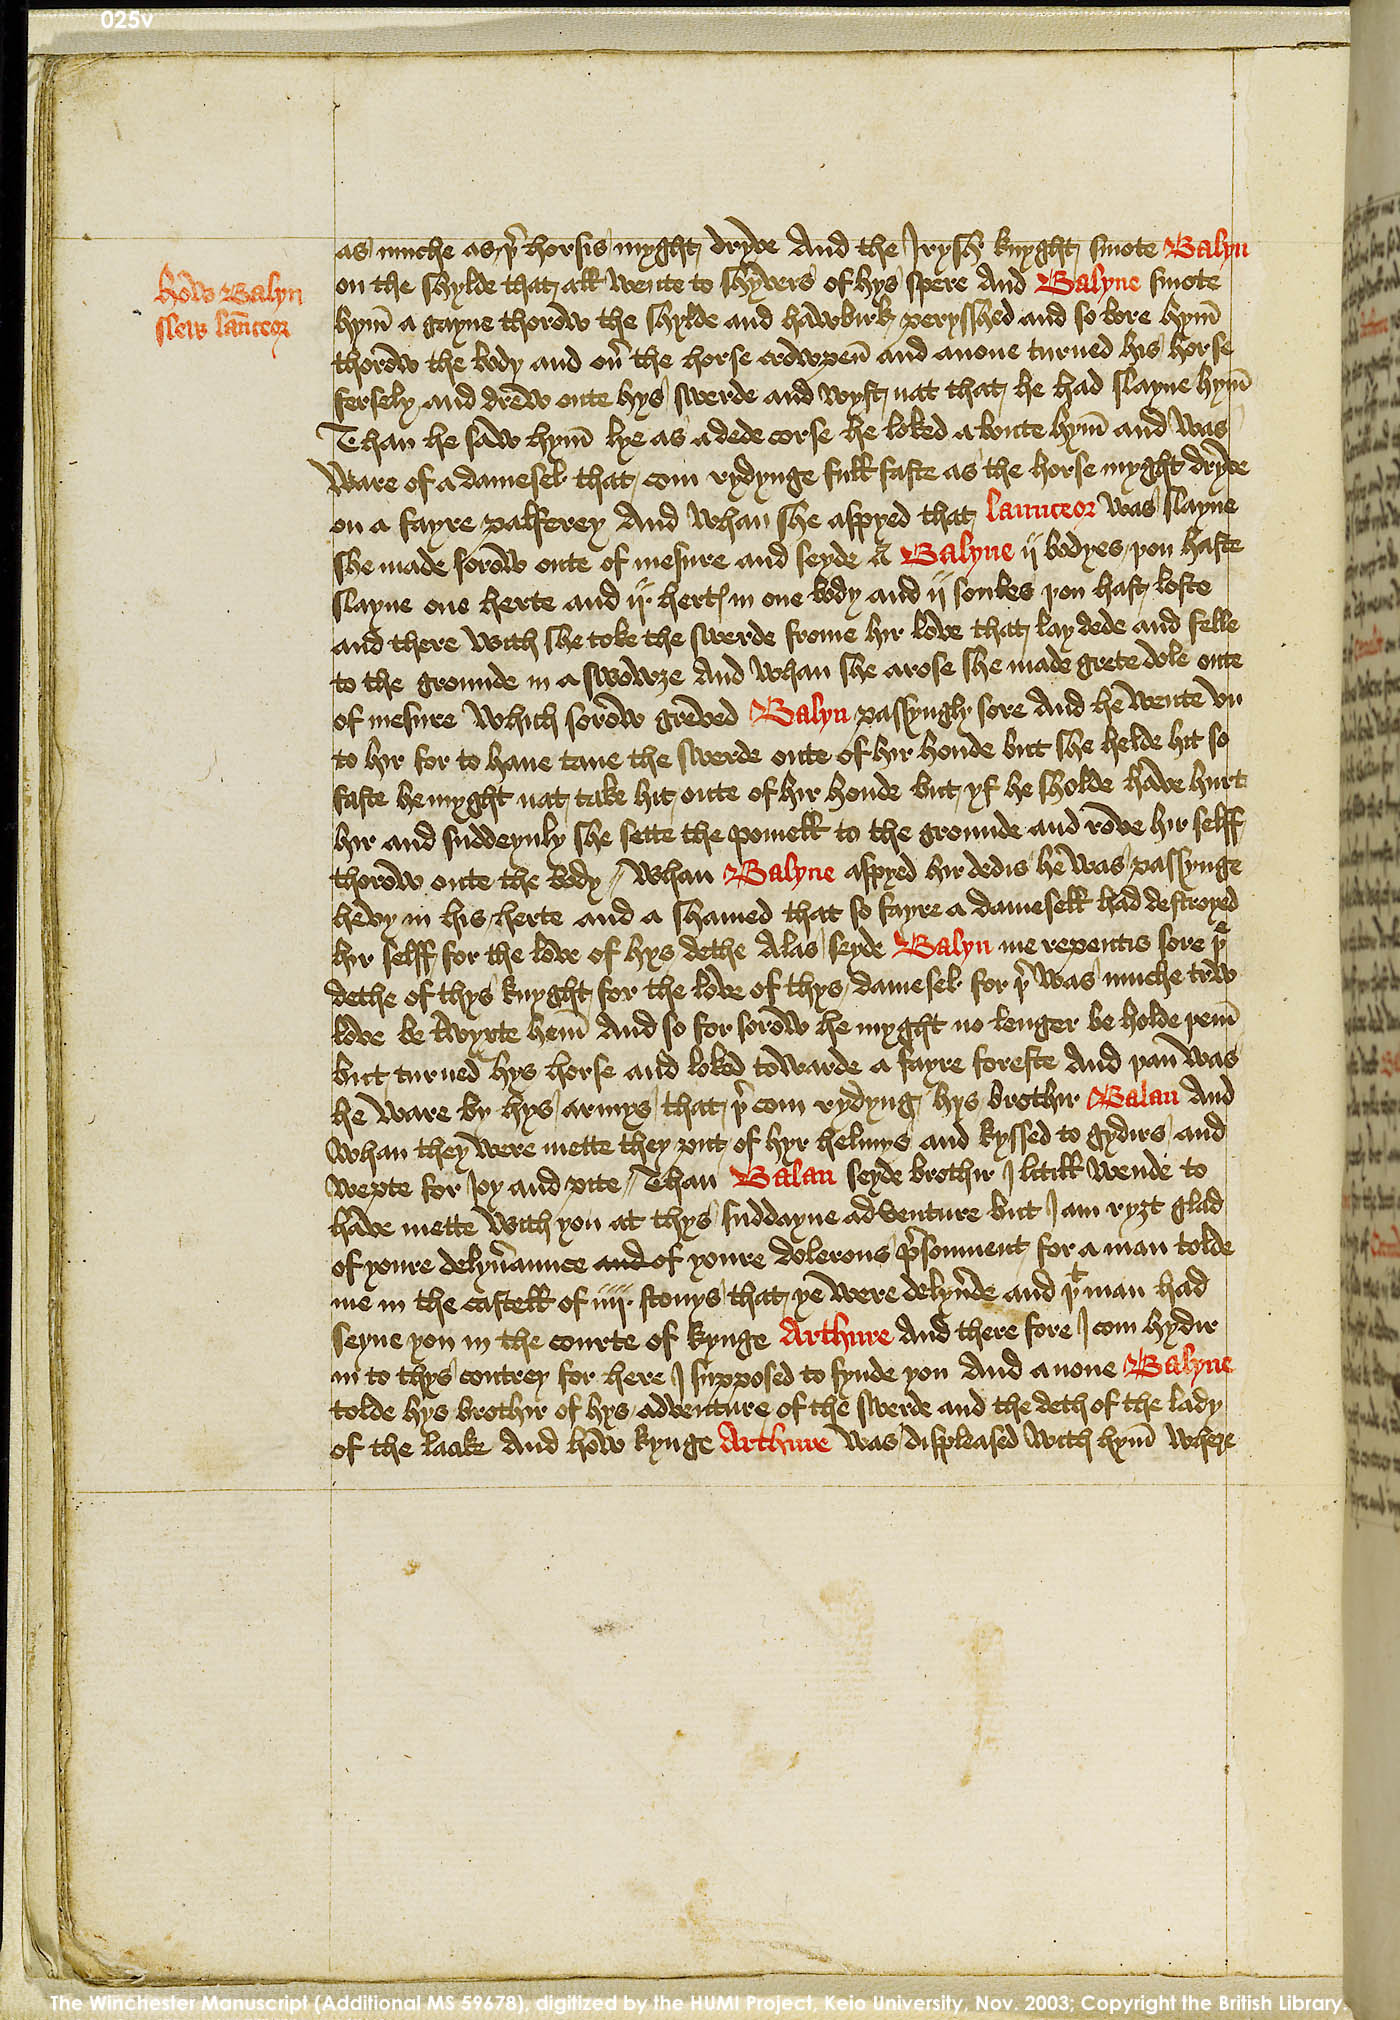 025v
as muche as þr horsis myght dryve And the Irysh knyght smote Balyn
on the shylde that all wente to shyvers of hys spere And Balyne smote
hym̄ a gayne thorow the shylde and hawbirk perysshed and so bore hym̄
thorow the body and ouer the horse crowpen̄ and anone turned his horse
fersely and drew oute hys swerde and wyst nat that he had slayne hym̄
Than he saw hym̄ lye as a dede corse he loked aboute hym̄ and was
ware of a damesel that com rydynge full faste as the horse myght dryve
on a fayre palferey And whan she aspyed that launceor was slayne
she made sorow oute of mesure and seyde A Balyne ij bodyes you haste
slayne one herte and ij hertes in one body and ij soules you hast loste
and there with she toke the swerde frome hir love that lay dede and felle
to the grounde in a swowȝe And whan she arose she made grete dole oute
of mesure which sorow greved Balyn passyngly sore And he wente vn
to hir for to haue tane the swerde oute of hir honde but she helde hit so
faste he myght nat take hit oute of hir honde but yf he sholde have hurt
hir and suddeynly she sette the pomell to the grounde and rove hir selff
thorow oute the body / whan Balyne aspyed hir dedis he was passynge
hevy in his herte and a shamed that so fayre a damesell had destroyed
hir selff for the love of hys dethe Alas seyde Balyn me repentis sore þe
dethe of thys knyght for the love of thys damesel for þr was muche trw
love be twyxte hem̄ And so for sorow he myght no lenger be holde þem̄
but turned hys horse and loked towarde a fayre foreste And þan was
he ware by hys armys that þr com rydyng hys brothir Balan And
whan they were mette they put of hyr helmys and kyssed to gydirs and
wepte for joy and pite / Than Balan seyde brothir I litill wende to
have mette with you at thys suddayne adventure but I am ryȝt glad
of youre delyueraunce and of youre dolerous presonment for a man tolde
me in the castell of iiij stonys that ye were delyuerde and þt man had
seyne you in the courte of kynge Arthure And there fore I com hydir
in to thys contrey for here I supposed to fynde you And anone Balyne
tolde hys brothir of hys adventure of the swerde and the deth of the lady
of the laake And how kynge Arthure was displeased with hym̄ wheȝe
how Balyn
slew lāuceor
The Winchester Manuscript (Additional MS 59678), digitized by the HUMI Project, Keio University, Nov. 2003; Copyright the British Library.